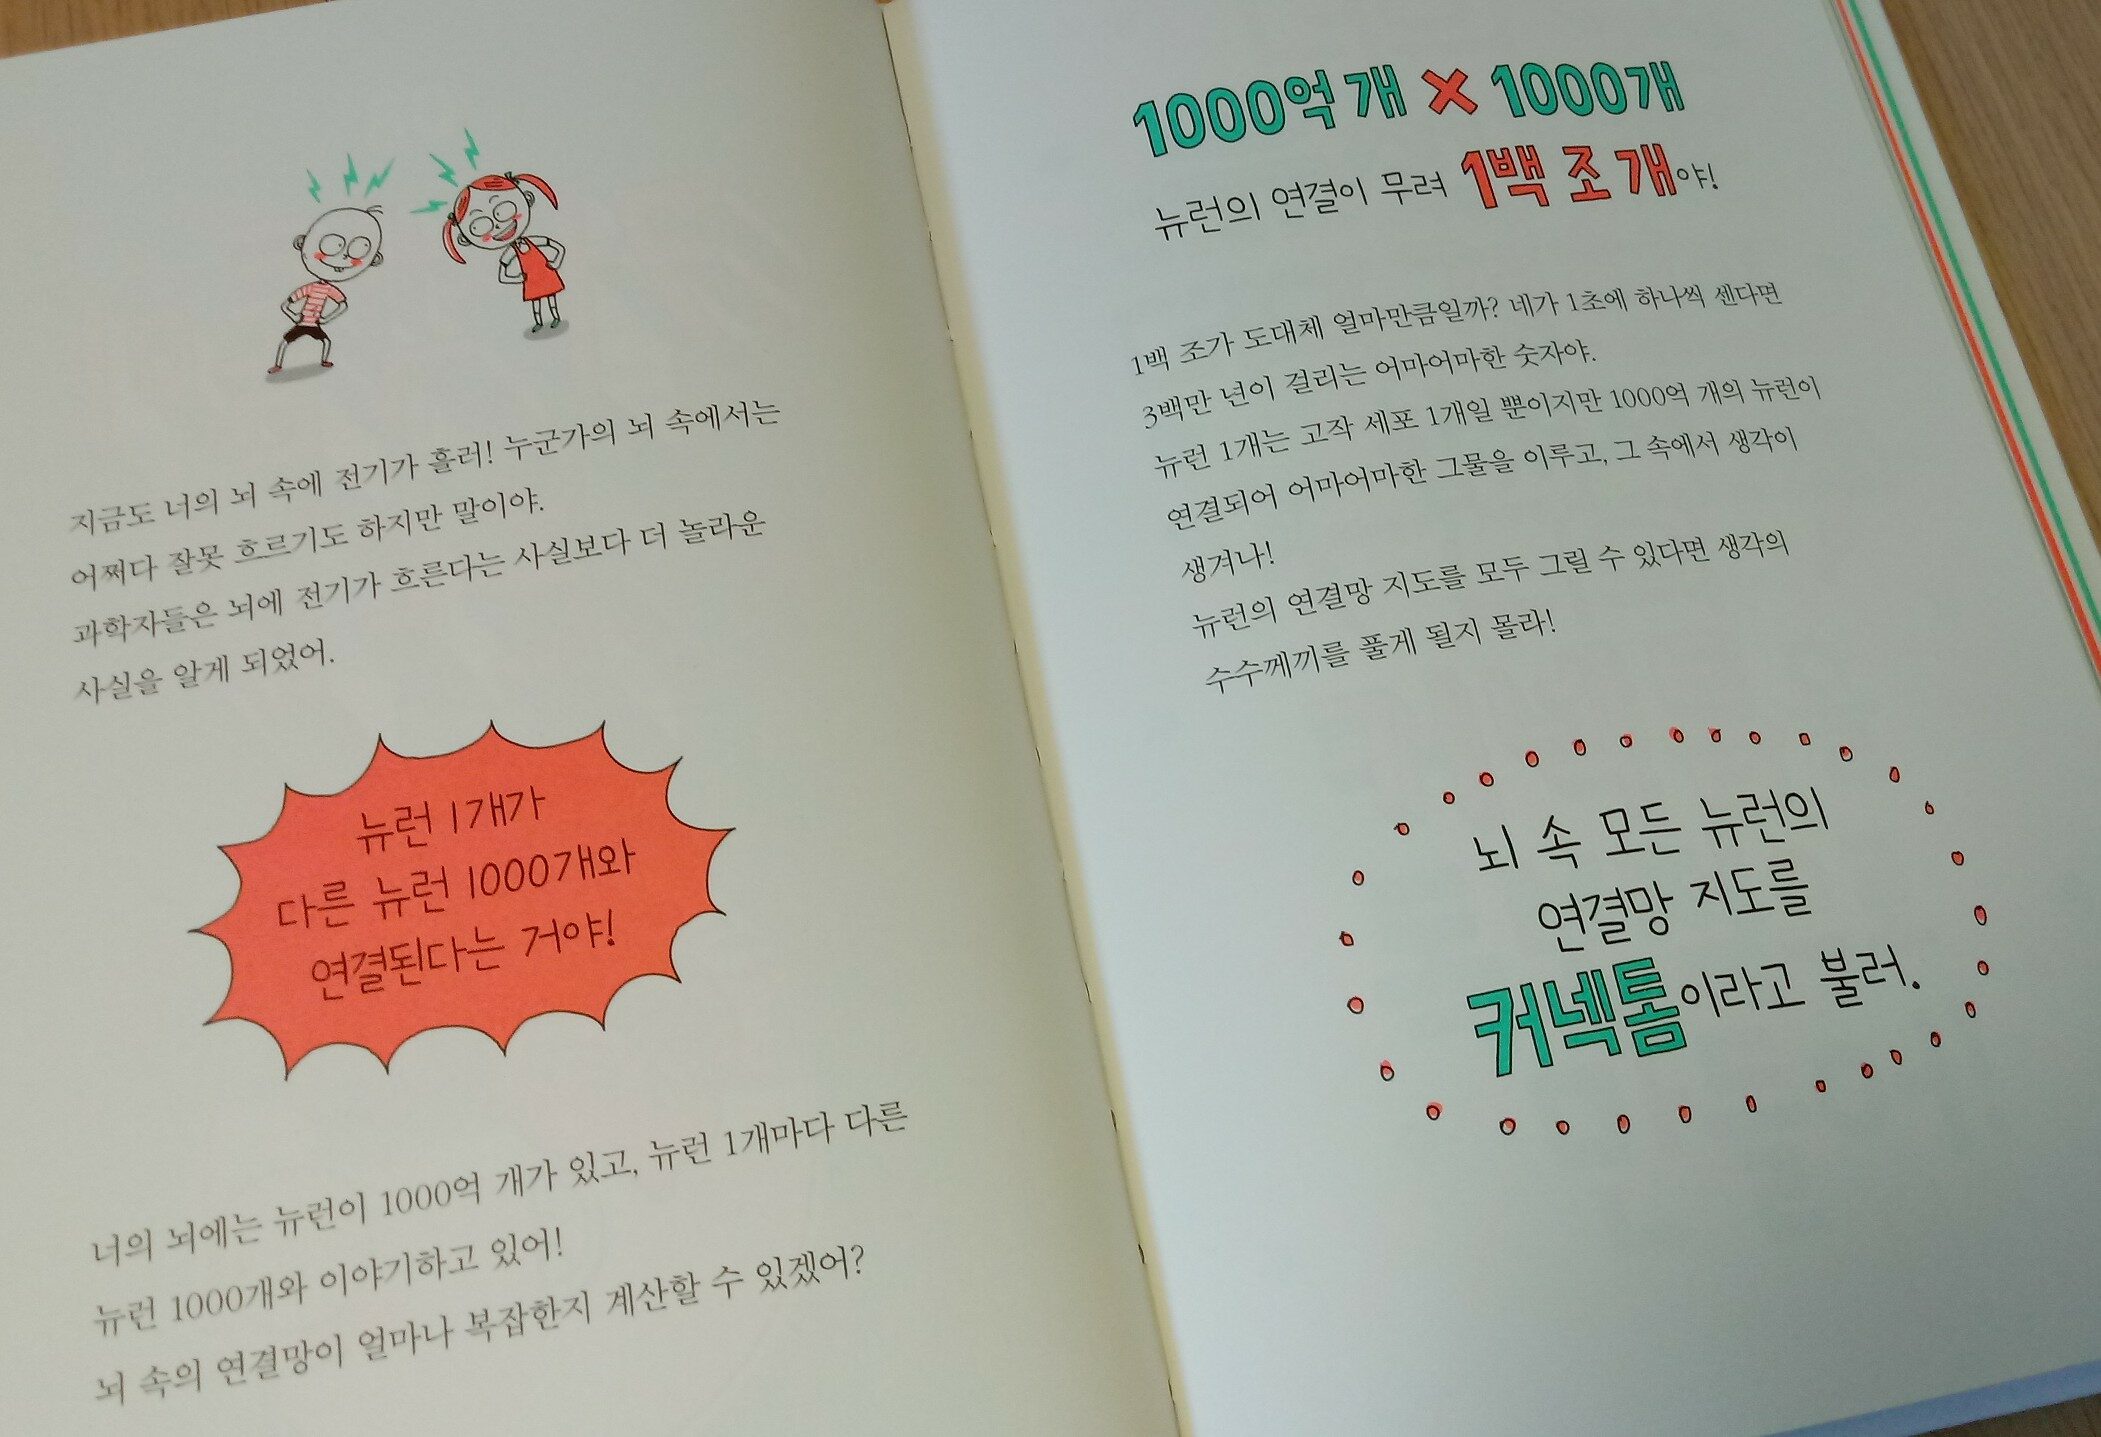 지금도 너의 뇌 속에 전기가 흘러! 누군가의 뇌 속에서는
어쩌다 잘못 흐르기도 하지만 말이야.
과학자들은 뇌에 전기가 흐른다는 사실보다 더 놀라운
사실을 알게 되었어.
뉴런 1개가
다른 뉴런 1000개와
연결된다는 거야!
너의 뇌에는 뉴런이 1000억 개가 있고, 뉴런 1개마다 다른
뉴런 1000개와 이야기하고 있어!
뇌 속의 연결망이 얼마나 복잡한지 계산할 수 있겠어?
1000억 개 × 1000개
뉴런의 연결이 무려 1백 조 개야!
1백 조가 도대체 얼마만큼일까? 네가 1초에 하나씩 센다면
3백만 년이 걸리는 어마어마한 숫자야.
뉴런 1개는 고작 세포 1개일 뿐이지만 1000억 개의 뉴런이
연결되어 어마어마한 그물을 이루고, 그 속에서 생각이
생겨나!
뉴런의 연결망 지도를 모두 그릴 수 있다면 생각의
수수께끼를 풀게 될지 몰라!
뇌 속 모든 뉴런의
연결망 지도를
커넥톰이라고 불러.